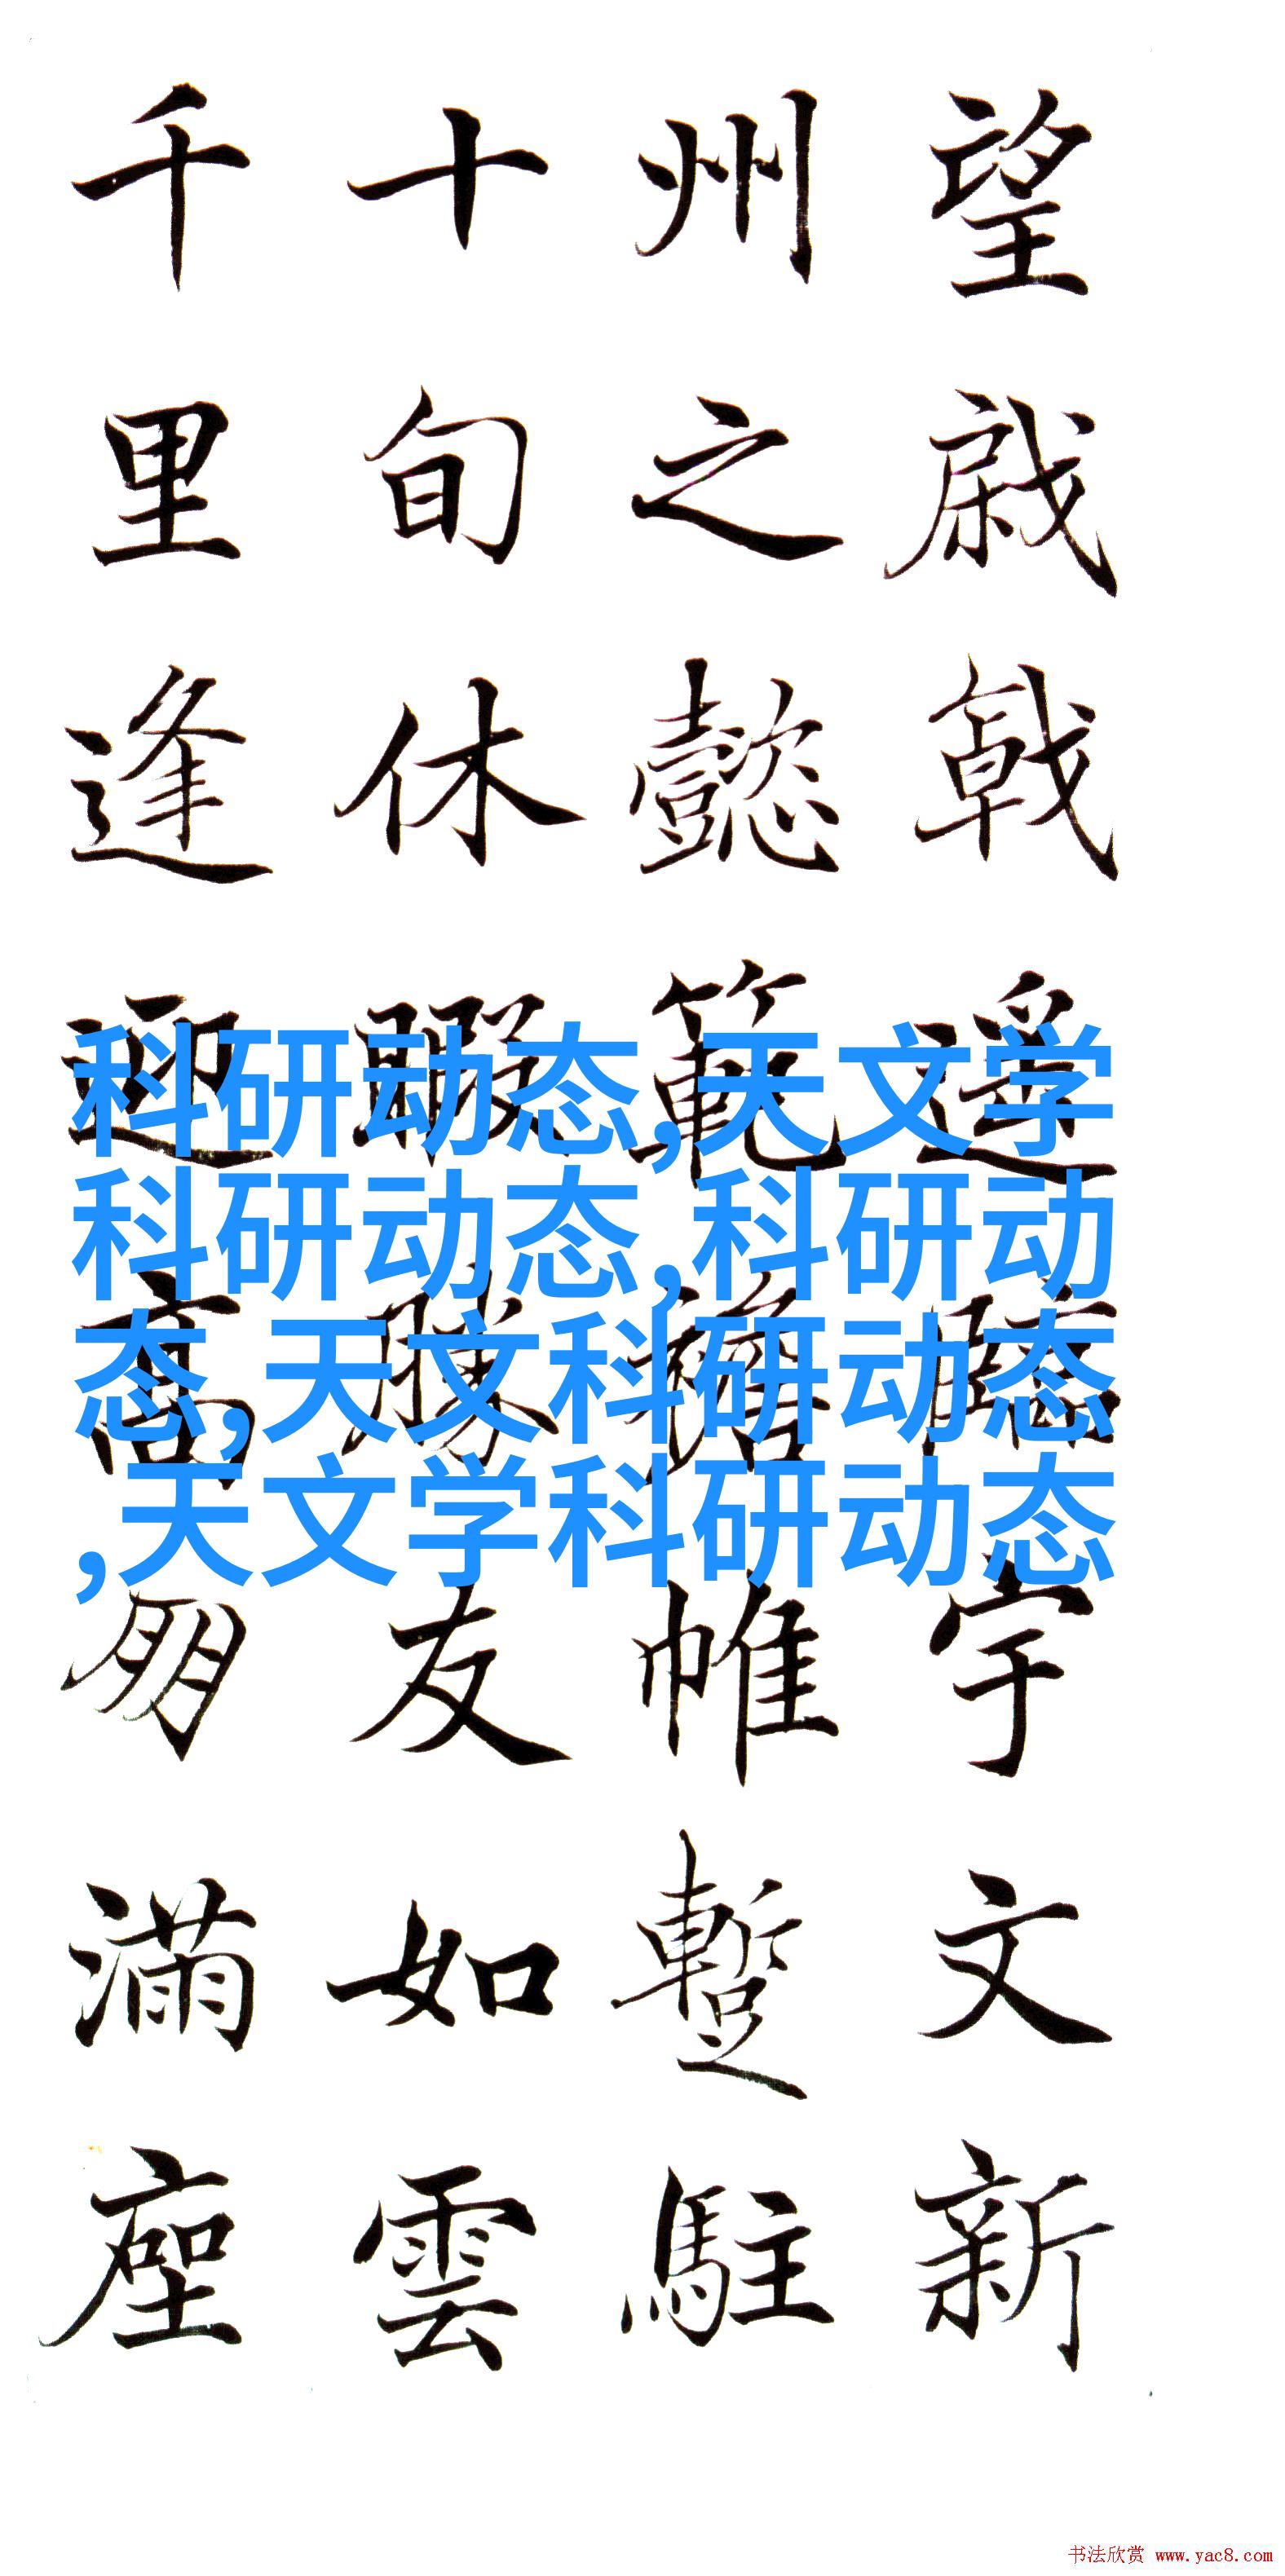 望棨戟遥臨宇文新
州之懿範襜帷暫駐
十旬休暇勝友如雲
千里逢迎高朋滿座
科研动态,天文学
科研动态,科研动
态,天文科研动态
,天文学科研动态
书法欣赏 www.yac8.com